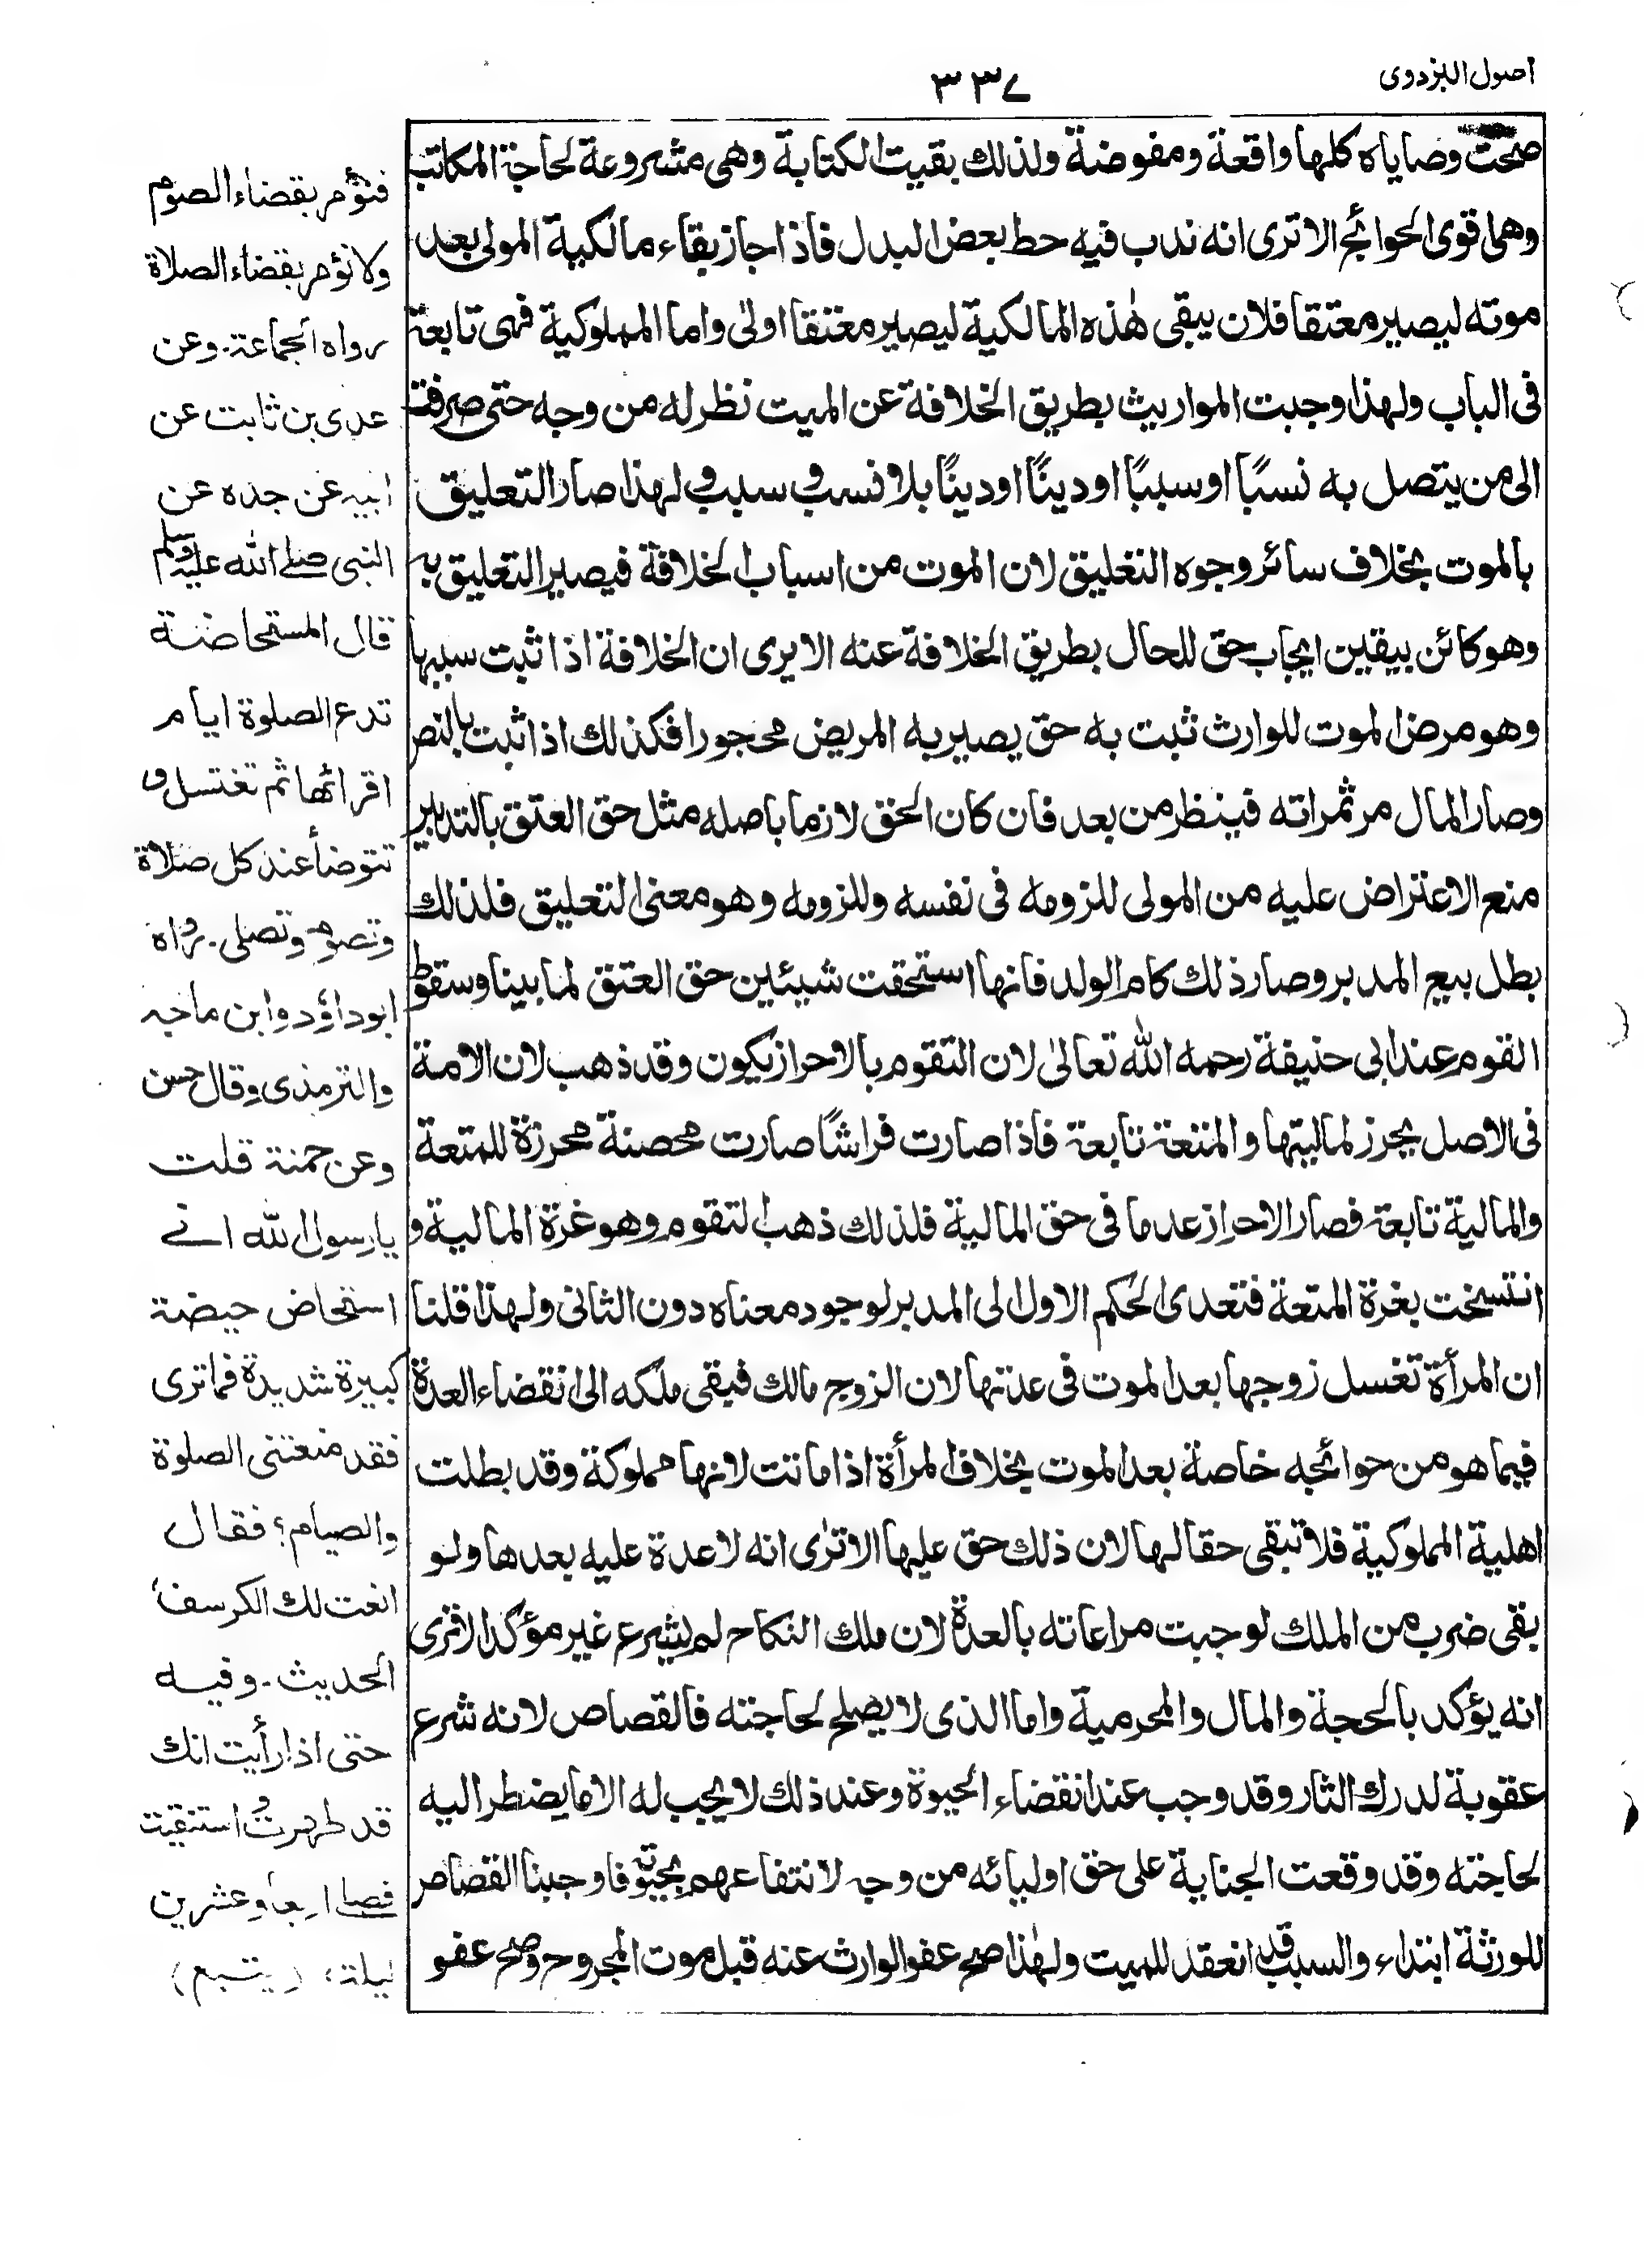 اصول البزدوی
٣٣٧
صحت وصاياه كلها واقعة ومفوضة ولذلك بقيت الكتابة وهى مشروعة لحاجة المكاتب
وهى اقوى الحوائج الا ترى انه ندب فيه حط بعض البدل فاذا جاز بقاء مالكية المولى بعد
موته ليصير معتقا فلان يبقى هٰذه المالكية ليصير معتقا اولىٰ واما المملوكية فهى تابعة
فى الباب ولهذا وجبت المواريث بطريق الخلافة عن الميت نظر له من وجه حتى صرفت
الى من يتصل به نسبًا او سببًا او دينًا او دينًا بلا نسب و سبب و لهذا صار التعليق
بالموت بخلاف سائر وجوه التعليق لان الموت من اسباب الخلافة فيصير التعليق به
وهو كائن بيقين ايجاب حق للحال بطريق الخلافة عنه الا يرى ان الخلافة اذا ثبت سببها
وهو مرض الموت للوارث ثبت به حق يصير به المريض محجورا فكذلك اذا ثبت بالنص
وصار المال من ثمراته فينظر من بعد فان كان الحق لازما باصله مثل حق العتق بالتدبير
منع الاعتراض عليه من المولى للزومه فى نفسه وللزومه وهو معنى التعليق فلذلك
بطل بيع المدبر وصار ذلك كام الولد فانها استحقت شيئين حق العتق لما بينا وسقوط
القوم عند ابى حنيفة رحمه الله تعالىٰ لان التقوم بالاحراز يكون وقد ذهب لان الامة
فى الاصل يحرز لماليتها والمتعة تابعة فاذا صارت فراشًا صارت محصنة محرزة للمتعة
والمالية تابعة فصار الاحراز عدما فى حق المالية فلذلك ذهب التقوم وهو غرة المالية و
انتسخت بغرة المتعة فتعدى الحكم الاول الى المدبر لوجود معناه دون الثانى ولهذا قلنا
ان المرأة تغسل زوجها بعد الموت فى عدتها لان الزوج مالك فبقى ملكه الى انقضاء العدة
فيما هو من حوائجه خاصة بعد الموت بخلاف المرأة اذا ماتت لانها مملوكة وقد بطلت
اهلية المملوكية فلا تبقى حقا لها لان ذلك حق عليها الا ترٰى انه لا عدة عليه بعدها ولو
بقى ضرب من الملك لوجبت مراعاته بالعدة لان ملك النكاح لم يشرع غير مؤكد الا ترى
انه يؤكد بالحجة والمال والمحرمية واما الذى لا يصلح لحاجته فالقصاص لانه شرع
عقوبة لدرك الثار وقد وجب عند انقضاء الحيوة وعند ذلك لا يجب له الا ما يضطر اليه
لحاجته وقد وقعت الجناية على حق اوليائه من وجه لانتفاعهم بحيوته فاوجبنا القصاص
للورثة ابتداء والسبب قد انعقد للميت ولهٰذا صح عفو الوارث عنه قبل موت المجروح وصح عفو
فنؤمر بقضاء الصوم
ولا نؤمر بقضاء الصلاة
رواه الجماعة۔ وعن
عدى بن ثابت عن
ابيه عن جده عن
النبى صلى الله عليه وسلم
قال المستحاضة
تدع الصلوة ايام
اقرائها ثم تغتسل و
تتوضأ عند كل صلاة
وتصوم وتصلى۔ رواه
ابو داؤد وابن ماجه
والترمذى وقال حسن
وعن حمنة قلت
يا رسول الله انى
استحاض حيضة
كبيرة شديدة فما ترى
فقد منعتنى الصلوة
والصيام؟ فقال
انعت لك الكرسف،
الحديث۔ وفيه
حتى اذا رأيت انك
قد طهرت واستنقيت
فصلى اربعا وعشرين
ليلة، (يتبع)